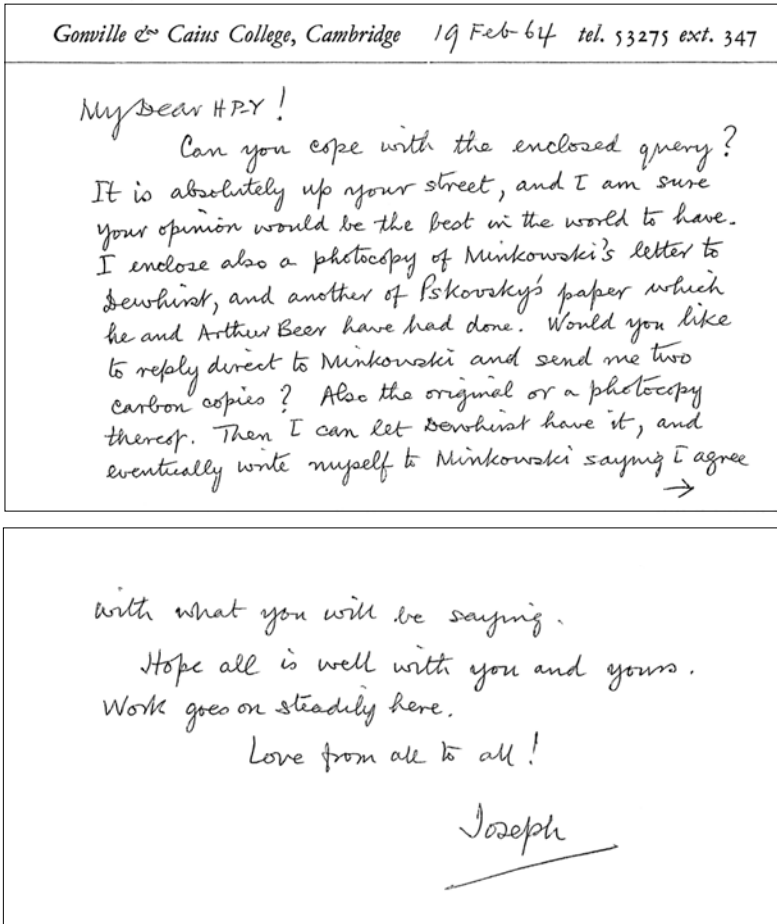 Gonville & Caius College, Cambridge 19 Feb 64 tel. 53275 ext. 347
My Dear HPY!
Can you cope with the enclosed query?
It is absolutely up your street, and I am sure
your opinion would be the best in the world to have.
I enclose also a photocopy of Minkowski's letter to
Dewhirst, and another of Pskovsky's paper which
he and Arthur Beer have had done. Would you like
to reply direct to Minkowski and send me two
carbon copies? Also the original or a photocopy
thereof. Then I can let Dewhirst have it, and
eventually write myself to Minkowski saying I agree
→
with what you will be saying.
Hope all is well with you and yours.
Work goes on steadily here.
Love from all to all!
Joseph